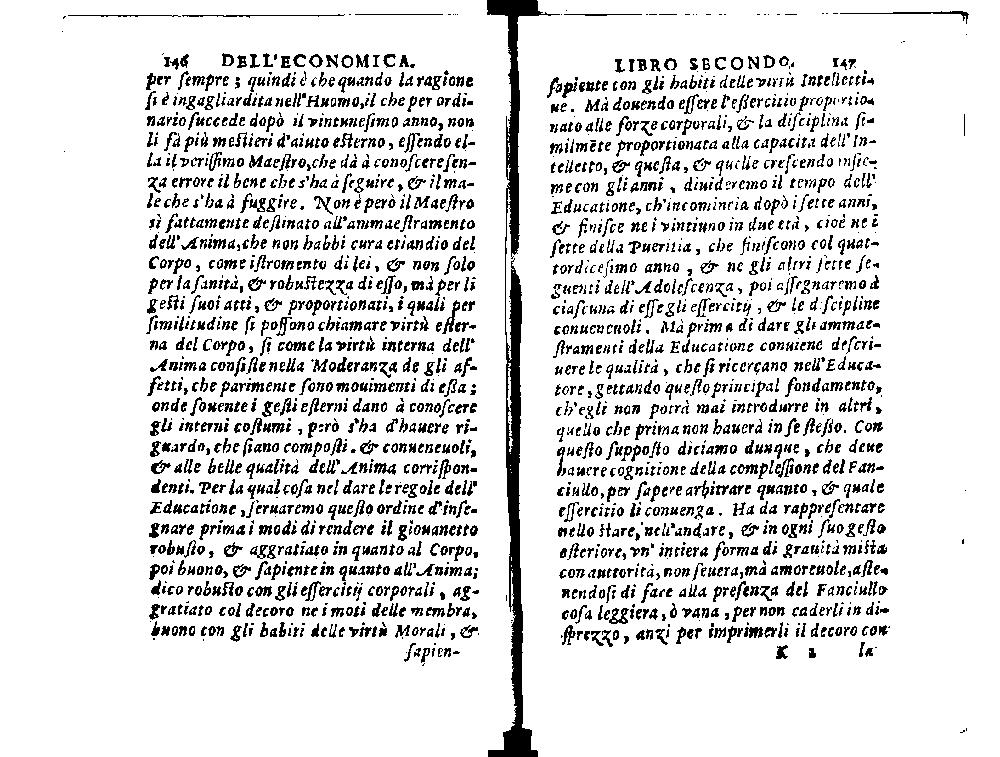 146 DELL'ECONOMICA.
per ſempre ; quindi è che quando la ragione
ſi è ingagliardita nell'Huomo, il che per ordi-
nario ſuccede dopò il vintuneſimo anno, non
li fà più meſtieri d'aiuto eſterno, eſſendo el-
la il veriſſimo Maeſtro, che dà à conoſcere ſen-
za errore il bene che s'ha à ſeguire, & il ma-
le che s'ha à fuggire. Non è però il Maeſtro
sì fattamente deſtinato all'ammaeſtramento
dell'Anima, che non habbi cura etiandio del
Corpo, come iſtromento di lei, & non ſolo
per la ſanità, & robuſtezza di eſſo, mà per li
geſti ſuoi atti, & proportionati, i quali per
ſimilitudine ſi poſſono chiamare virtù eſter-
na del Corpo, ſi come la virtù interna dell'
Anima conſiſte nella Moderanza de gli af-
fetti, che parimente ſono mouimenti di eſſa ;
onde ſouente i geſti eſterni dano à conoſcere
gli interni coſtumi, però s'ha d'hauere ri-
guardo, che ſiano compoſti. & conueneuoli,
& alle belle qualità dell'Anima corriſpon-
denti. Per la qual coſa nel dare le regole dell'
Educatione, ſeruaremo queſto ordine d'inſe-
gnare prima i modi di rendere il giouanetto
robuſto, & aggratiato in quanto al Corpo,
poi buono, & ſapiente in quanto all'Anima;
dico robuſto con gli eſſercitij corporali, ag-
gratiato col decoro ne i moti delle membra,
buono con gli habiti delle virtù Morali, &
ſapien-
LIBRO SECONDO. 147
ſapiente con gli habiti delle virtù Intelletti-
ue. Mà douendo eſſere l'eſſercitio proportio-
nato alle forze corporali, & la diſciplina ſi-
milmēte proportionata alla capacità dell'In-
telletto, & queſta, & quelle creſcendo inſie-
me con gli anni, diuideremo il tempo dell'
Educatione, ch'incomincia dopò i ſette anni,
& finiſce ne i vintiuno in due età, cioè ne i
ſette della Pueritia, che finiſcono col quat-
tordiceſimo anno, & ne gli altri ſette ſe-
guenti dell'Adoleſcenza, poi aſſegnaremo à
ciaſcuna di eſſe gli eſſercitij, & le diſcipline
conueneuoli. Mà prima di dare gli ammae-
ſtramenti della Educatione conuiene deſcri-
uere le qualità, che ſi ricercano nell'Educa-
tore, gettando queſto principal fondamento,
ch'egli non potrà mai introdurre in altri,
quello che prima non hauerà in ſe ſteſſo. Con
queſto ſuppoſto diciamo dunque, che deue
hauere cognitione della compleſſione del Fan-
ciullo, per ſapere arbitrare quanto, & quale
eſſercitio li conuenga. Ha da rappreſentare
nello ſtare, nell'andare, & in ogni ſuo geſto
eſteriore, vn' intiera forma di grauità miſta
con auttorità, non ſeuera, mà amoreuole, aſte-
nendoſi di fare alla preſenza del Fanciullo
coſa leggiera, ò vana, per non caderli in di-
ſprezzo, anzi per imprimerli il decoro con
K 2 la